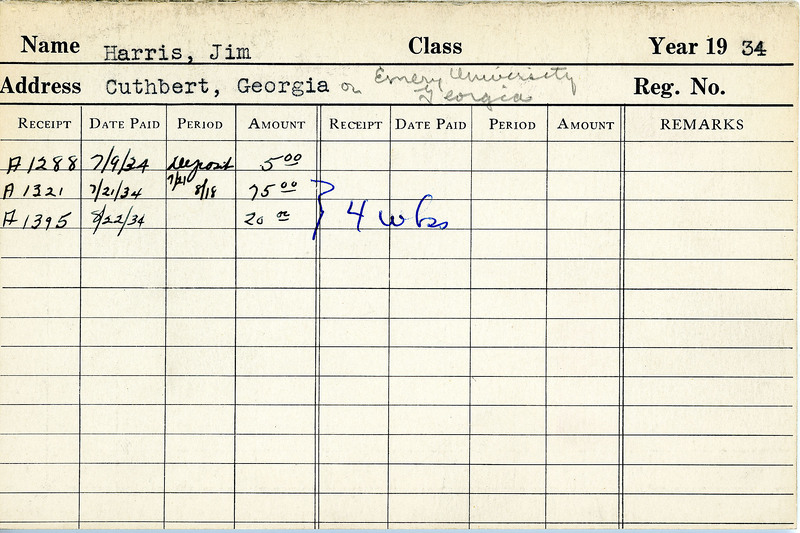 Name Harris, Jim Class Year 19 34
Address Cuthbert, Georgia or Emory University Georgia Reg. No.
RECEIPT DATE PAID PERIOD AMOUNT RECEIPT DATE PAID PERIOD AMOUNT REMARKS
A1288 7/9/34 Deposit 5 00
A1321 7/21/34 7/21 8/18 75 00
A1395 8/22/34 20 00 } 4 wks